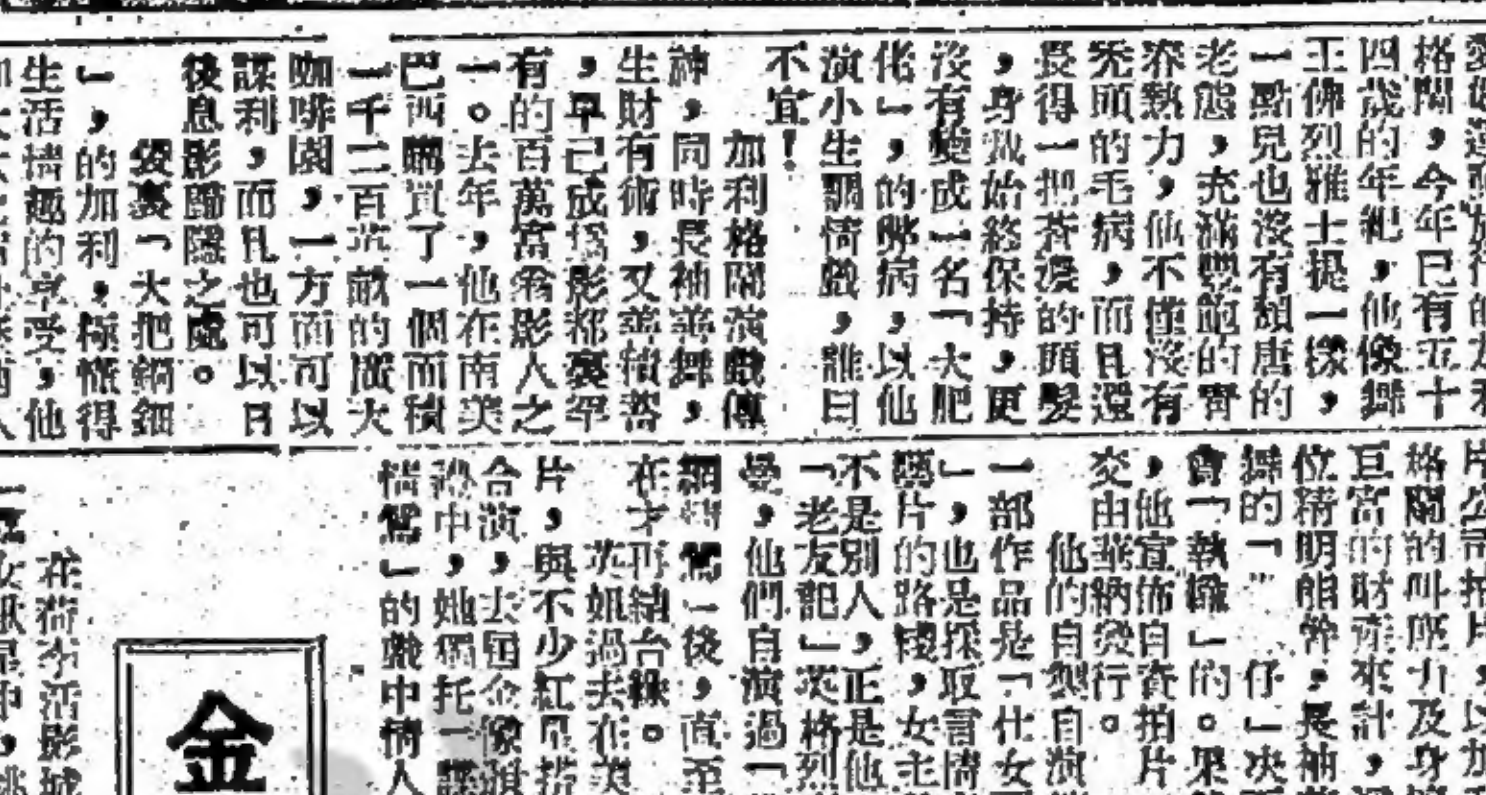 格蘭，今年已有五十
四歲的年紀，他像舞
王佛烈雅士提一樣，
一點兒也沒有頹唐的
老態，充滿豐飽的青
春熱力，他不僅沒有
禿頭的毛病，而且還
長得一把蒼濃的頭髮
，身裁始終保持，更
沒有變成一名「大肥
佬」，的弊病，以他
演小生調情戲，誰曰
不宜！
加利格蘭演戲傳
神，同時長袖善舞，
生財有術，又善積蓄
，早已成爲影都裏罕
有的百萬富翁影人之
一。去年，他在南美
巴西購買了一個面積
一千二百英畝的廣大
咖啡園，一方面可以
謀利，而且也可以日
後息影歸隱之處。
袋裏「大把錢鈿
」，的加利，極懂得
生活情趣的享受，他
片公司拍片，以加
格蘭的叫座力及身
巨富的財產來計，
位精明能幹，長袖
舞的「仔」決
會「執輸」的。果
，他宣佈自資拍片
交由華納發行。
他的自製自演
一部作品是「仕女
」，也是採取言情
藝片的路綫，女主
不是別人，正是他
「老友記」英格烈
曼，他們自演過「
後，直至
在才再結台緣。
英姐過去在美
片，與不少紅星搭
合演，去屆金像
熱中，她獨托一
情鴛」的戲中情人
金
在荷李活影城